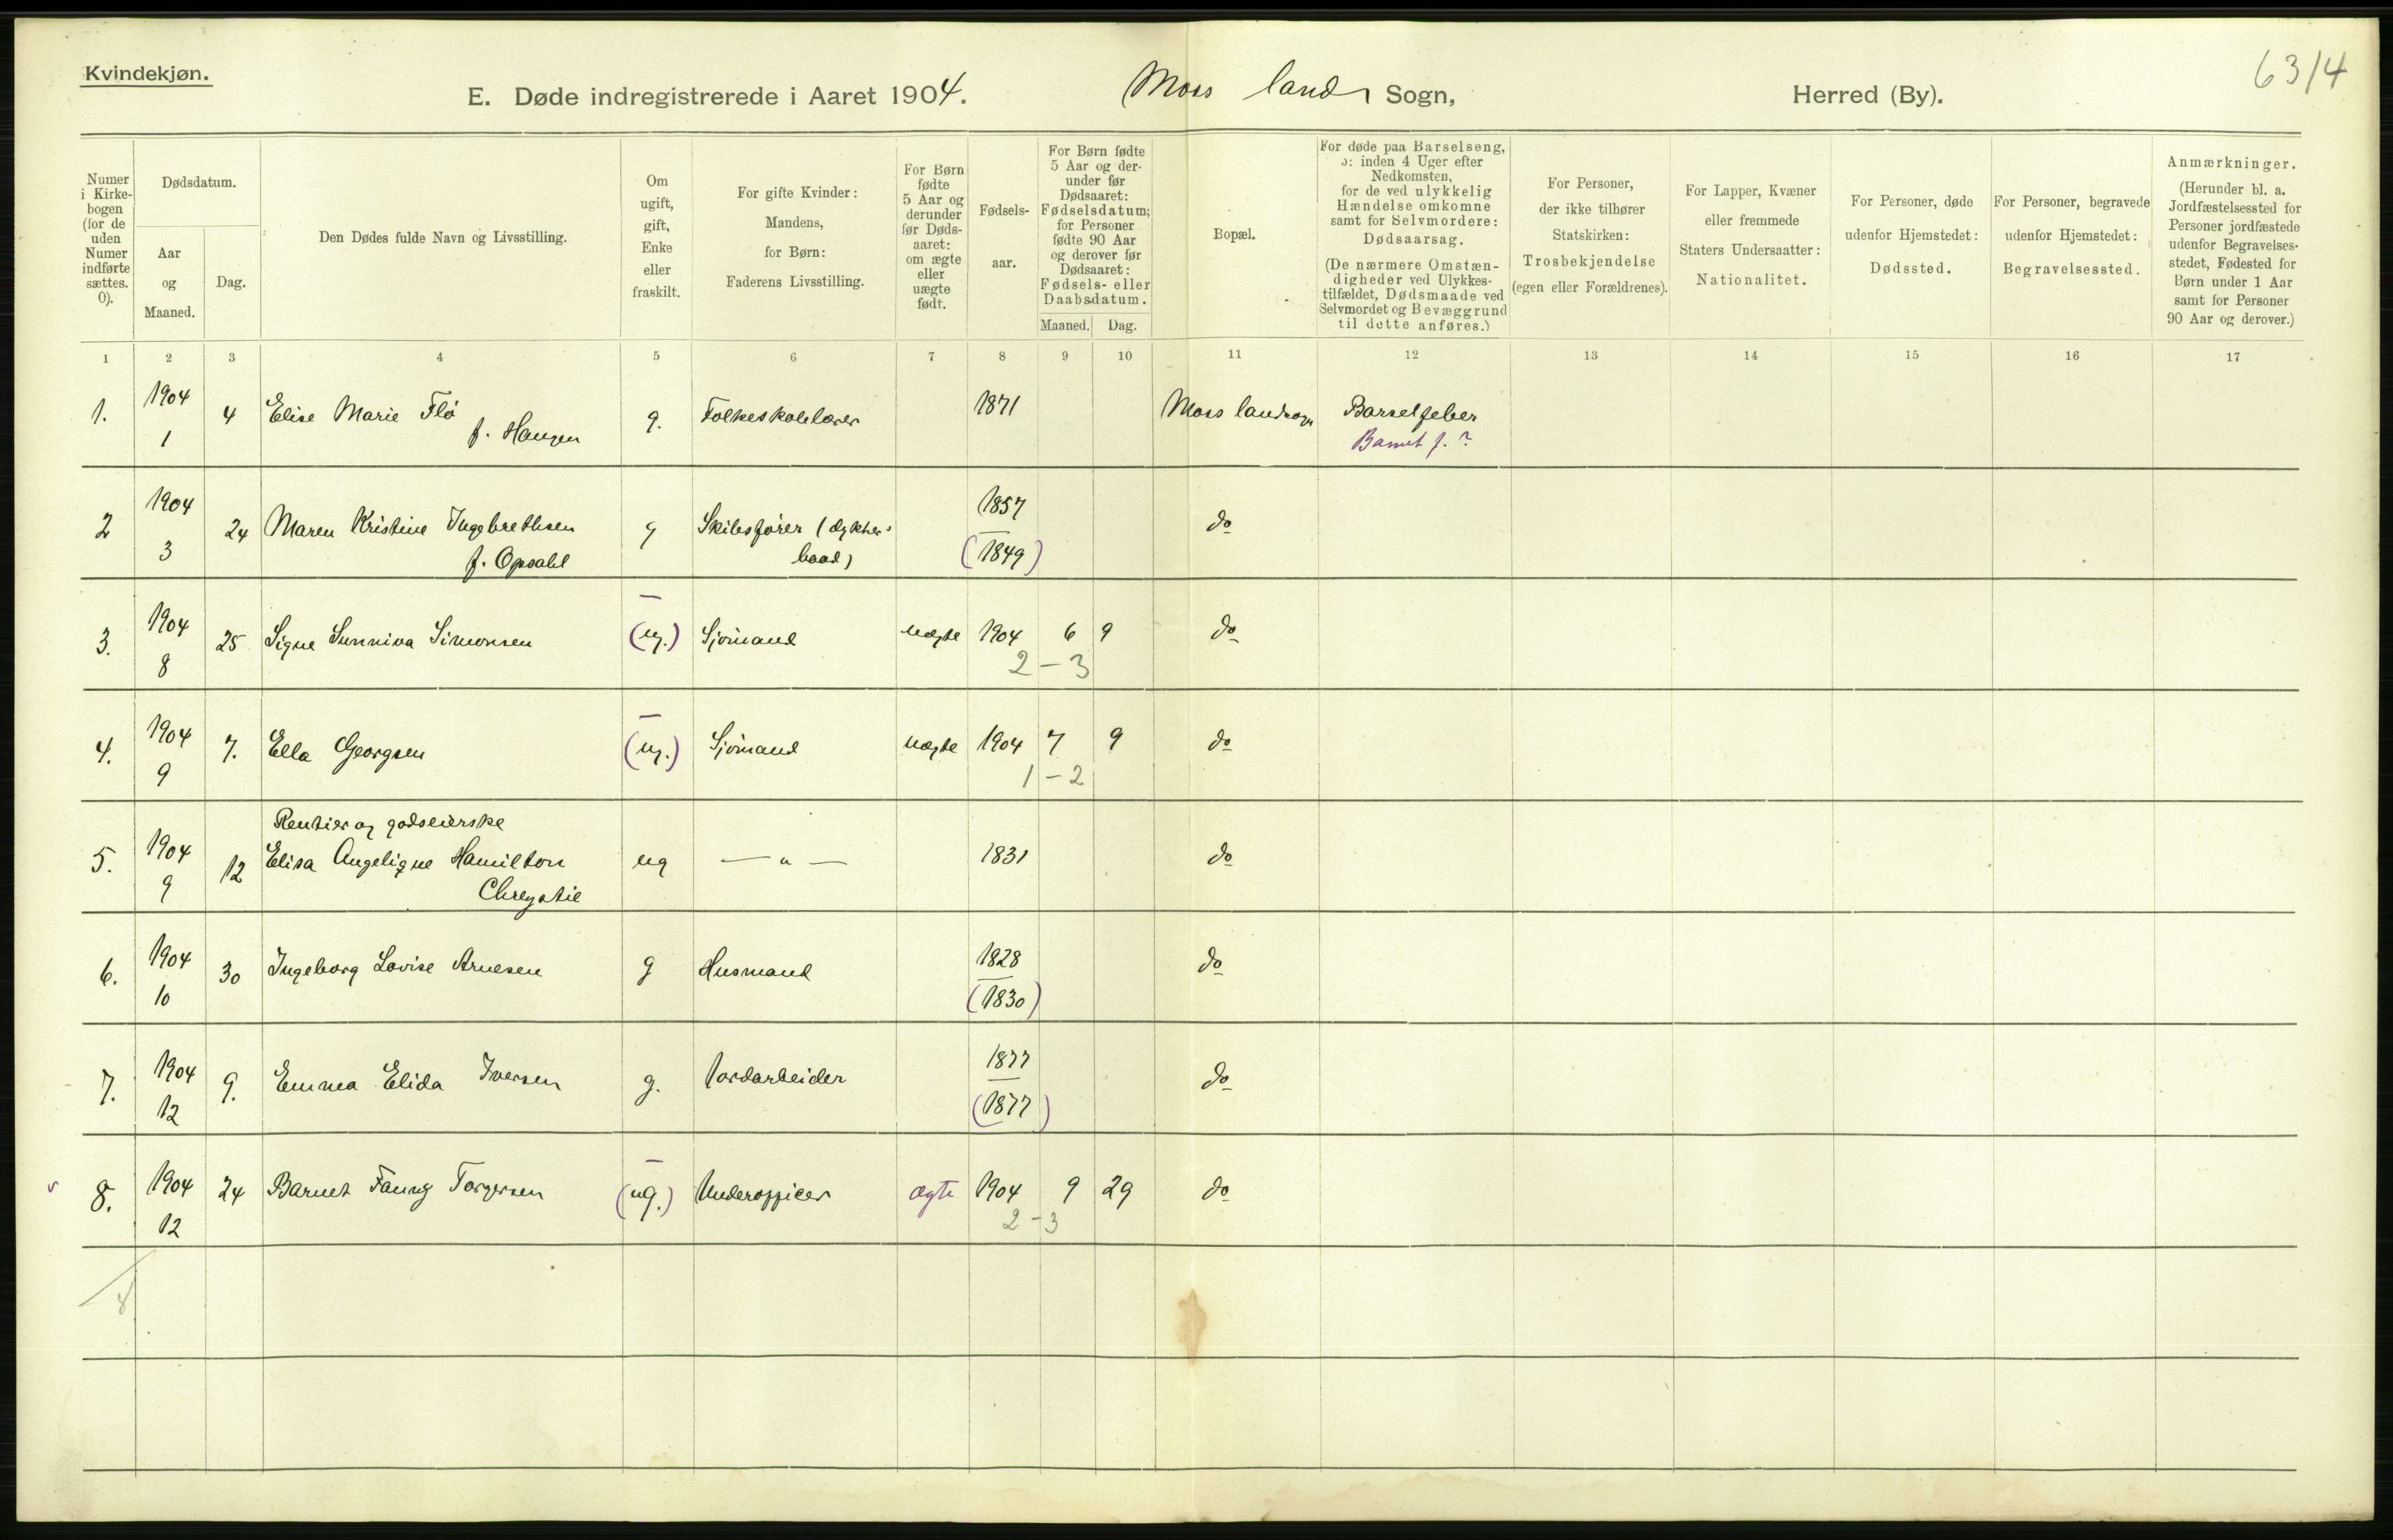 Kvindekjøn.
E. Døde indregistrerede i Aaret 1904. Moss lands Sogn, Herred (By).
63/4
Numer i Kirkebogen (for de uden Numer indførte sættes. 0).
Dødsdatum.
Aar og Maaned.
Dag.
Den Dødes fulde Navn og Livsstilling.
Om ugift, gift, Enke eller fraskilt.
For gifte Kvinder: Mandens, for Børn: Faderens Livsstilling.
For Børn fødte 5 Aar og derunder før Dødsaaret: om ægte eller uægte født.
Fødselsaar.
For Børn fødte 5 Aar og derunder før Dødsaaret: Fødselsdatum; for Personer fødte 90 Aar og derover før Dødsaaret: Fødsels- eller Daabsdatum.
Maaned. Dag.
Bopæl.
For døde paa Barselseng, ɔ: inden 4 Uger efter Nedkomsten, for de ved ulykkelig Hændelse omkomne samt for Selvmordere: Dødsaarsag. (De nærmere Omstændigheder ved Ulykkestilfældet, Dødsmaade ved Selvmordet og Bevæggrund til dette anføres.)
For Personer, der ikke tilhører Statskirken: Trosbekjendelse (egen eller Forældrenes).
For Lapper, Kvæner eller fremmede Staters Undersaatter: Nationalitet.
For Personer, døde udenfor Hjemstedet: Dødssted.
For Personer, begravede udenfor Hjemstedet: Begravelsessted.
Anmærkninger. (Herunder bl. a. Jordfæstelsessted for Personer jordfæstede udenfor Begravelsesstedet, Fødested for Børn under 1 Aar samt for Personer 90 Aar og derover.)
1 2 3 4 5 6 7 8 9 10 11 12 13 14 15 16 17
1. 1904 1 4 Elise Marie Flö f. Haugen g. Folkeskolelærer 1871 Moss landsogn Barselfeber
Barnet f. ?
2 1904 3 24 Maren Kristine Ingebrethsen f. Opsahl g Skibsfører (dykkerbaad) 1857 (1849) do
3. 1904 8 25 Signe Sunniva Simonsen (ug.) Sjömand uægte 1904 6 9 do
2 - 3
4. 1904 9 7. Ella Georgsen (ug.) Sjömand uægte 1904 7 9 do
1 - 2
Rentier og godseierske
5. 1904 9 12 Elisa Angelique Hamilton Chrystie ug — " — 1831 do
6. 1904 10 30 Ingeborg Lovise Arnesen g Husmand 1828 (1830) do
7. 1904 12 9. Emma Elida Iversen g. Jordarbeider 1877 (1877) do
8. 1904 12 24 Barnet Fanny Torgersen (ug.) Underofficer ægte 1904 9 29 do
2 - 3
8